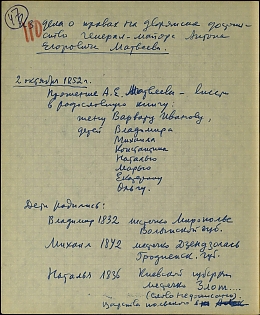 47
110
дела о правах на дворянское достоин-
ство Генерал-майора Антона
Егоровича Матвеева.
2 октября 1852 г.
Прошение А.Е. Матвеева - внести
в родословную книгу:
жену Варвару Иванову,
детей Владимира
Михаила
Константина
Наталью
Марью
Екатерину
Ольгу.
Дети родились:
Владимир 1832 местечко Мирополье
Волынской губ.
Михаил 1842 местечко
Гродненск. губ.
Наталья 1836 Киевской губернии
местечко Злот....
(слово недописано)
Царства польского